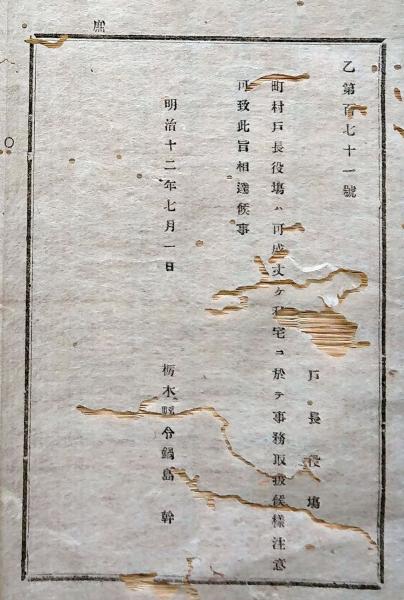 乙第百七十一號
戸長役塲
町村戸長役塲ハ可成丈ケ私宅ニ於テ事務取扱候樣注意
可致此旨相達候事
明治十二年七月一日
栃木縣令鍋島幹